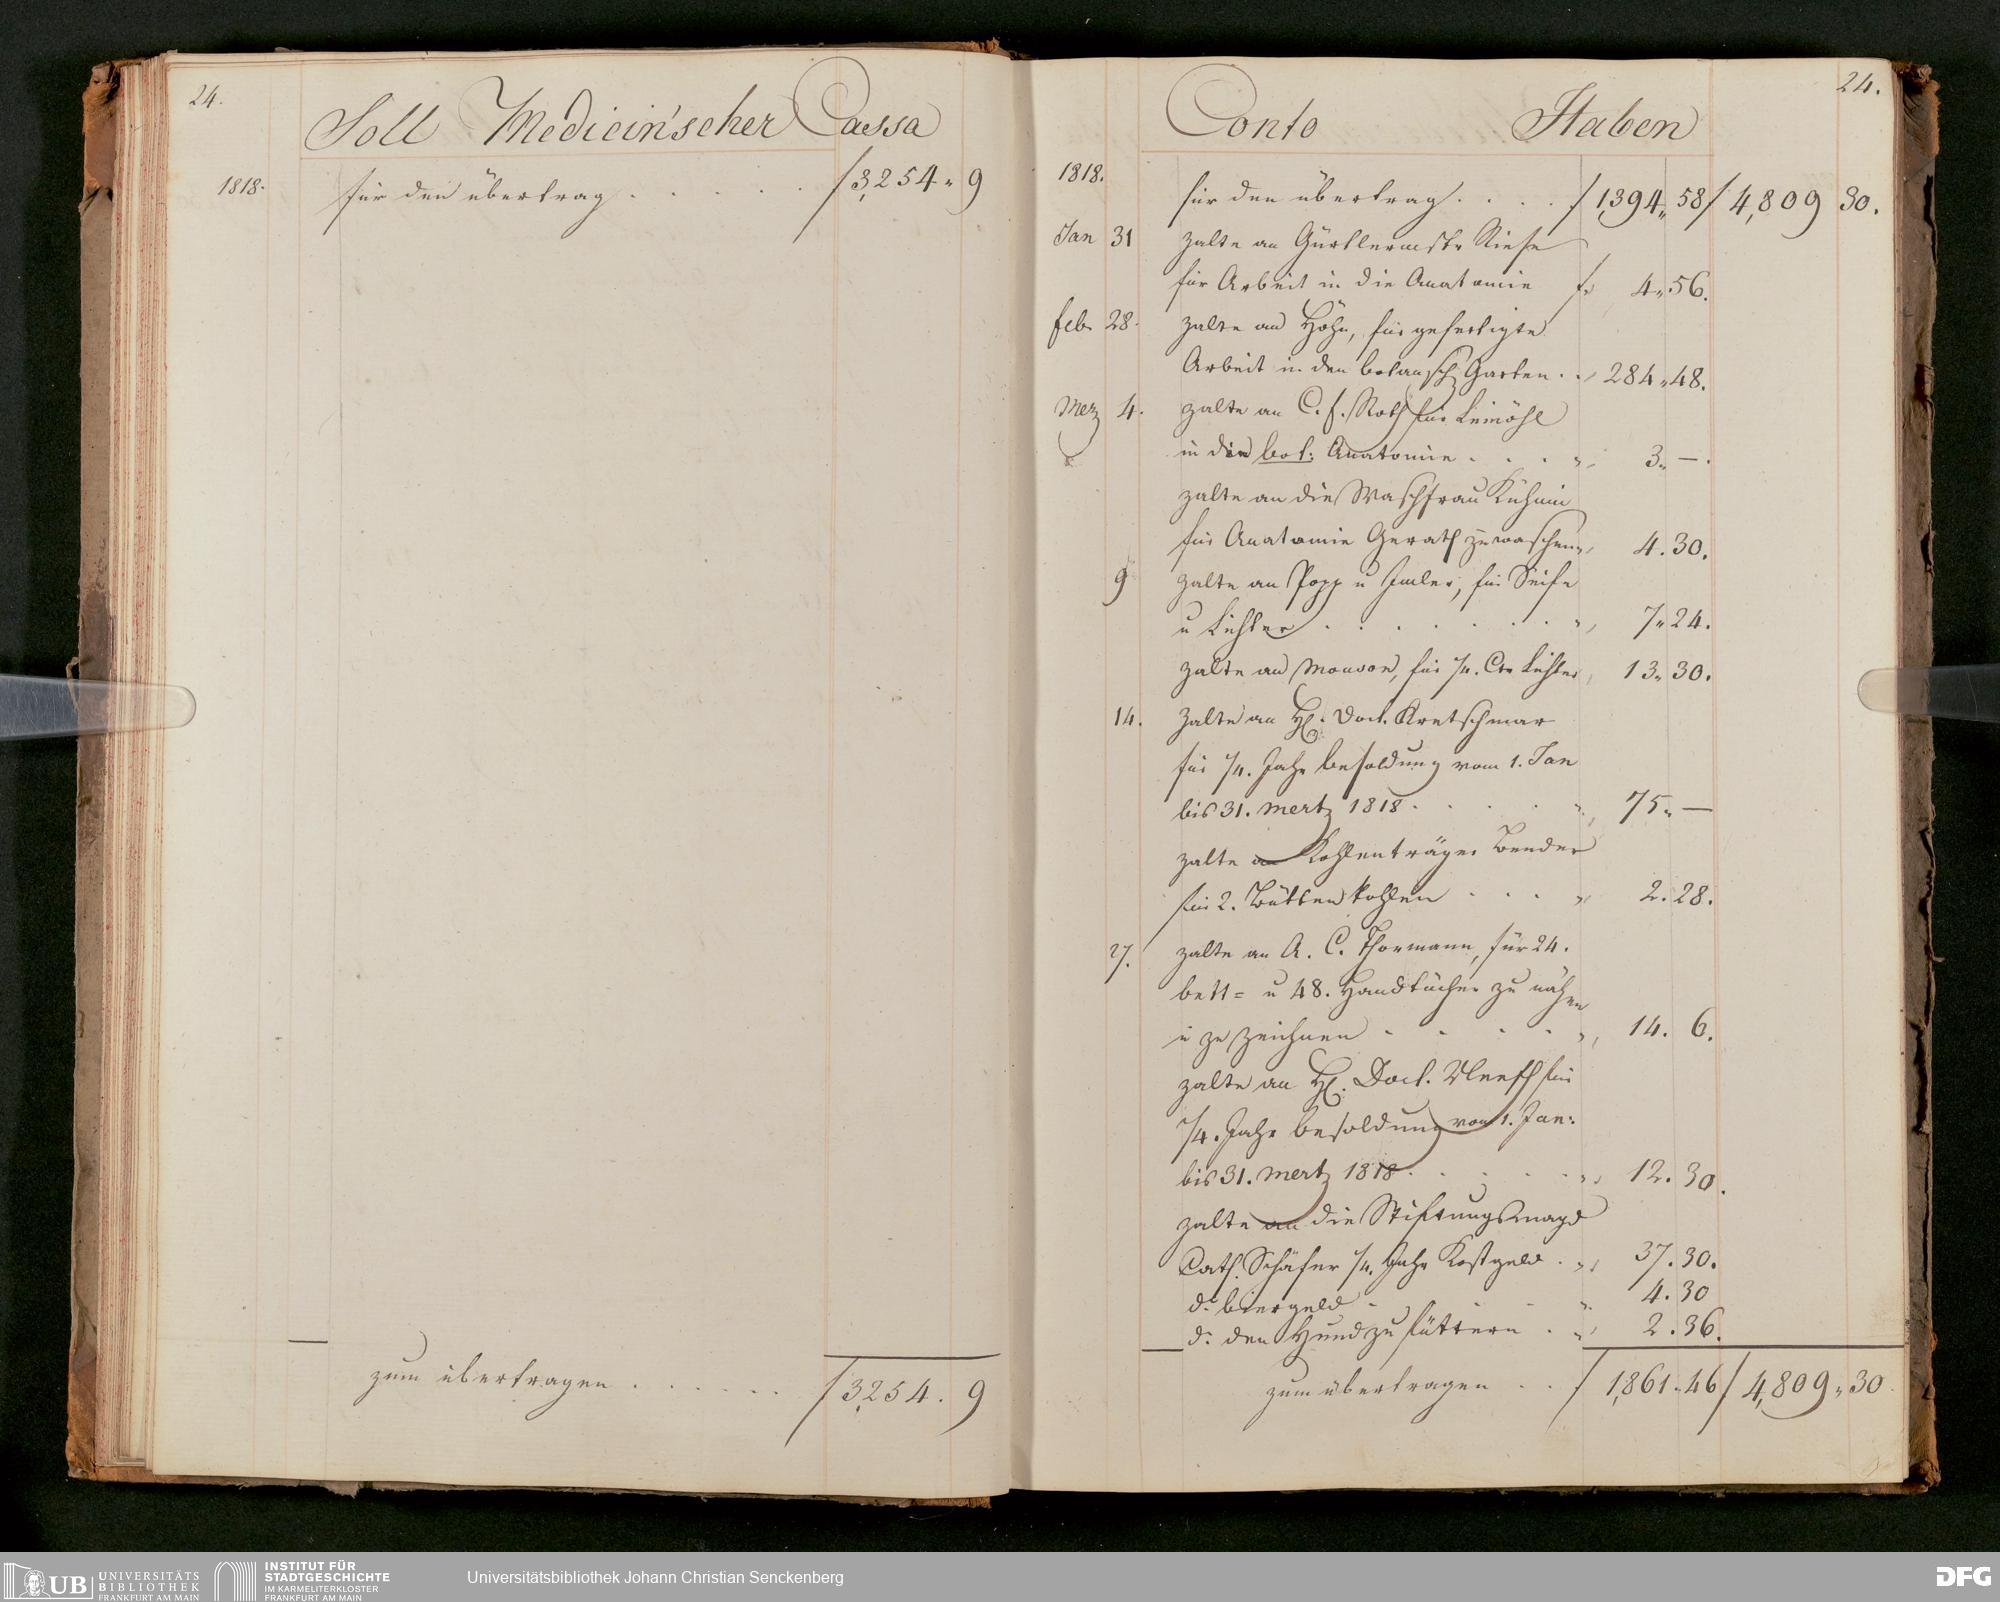 24.
Soll Medicin'scher Cassa
1818. für den übertrag . . . . . f 3,254 „ 9
zum übertragen . . . . . . f 3,254 . 9
24.
Conto Haben
1818. für den übertrag . . . . f 1,394 „ 58 f 4,809 30.
Jan 31 zalte an Gürtlermstr Riese
für Arbeit in die Anatomie f. 4 „ 56.
feb. 28. zalte an Höhn, für gefertigte
Arbeit in den botansch. Garten . . 284 „ 48.
Merz 4. zalte an C. f. Roth für Leinöhl
in die bot: Anatomie . . . „ 3 „ — .
zalte an die Waschfrau Kuhnin
für Anatomie Gerath zu waschen „ 4 . 30.
9 zalte an Popp u , für Seife
u Lichter . . . . . . „ 7 „ 24.
zalte an Mouson, für 1/4. Ctr Lichter „ 13 „ 30.
14. zalte an H. Doct. Kretschmar
für 1/4. Jahr besoldung vom 1. Jan
bis 31. Mertz 1818 . . . . „ 75 „ —
zalte an Kohlenträger Bender
für 2. Bütten kohlen . . . „ 2 . 28.
27. zalte an A. C. Thormann, für 24.
bett = u 48. Handtücher zu nähen
u zu zeichnen . . . . „ 14 . 6.
zalte an H. Doct. für
1/4. Jahr besoldung vom 1. Jan:
bis 31. Mertz 1818 . . . . „ 12 . 30.
zalte an die Stiftungsmagd
Cath. Schäfer 1/4. Jahr Kostgeld . „ 37 . 30.
do. biergeld . . . „ 4 . 30
do. den Hund zu füttern . „ 2 . 36.
zum übertragen . . f 1,861 „ 46 f 4,809 „ 30.
UB UNIVERSITÄTS
BIBLIOTHEK
FRANKFURT AM MAIN
INSTITUT FÜR
STADTGESCHICHTE
IM KARMELITERKLOSTER
FRANKFURT AM MAIN
Universitätsbibliothek Johann Christian Senckenberg
DFG